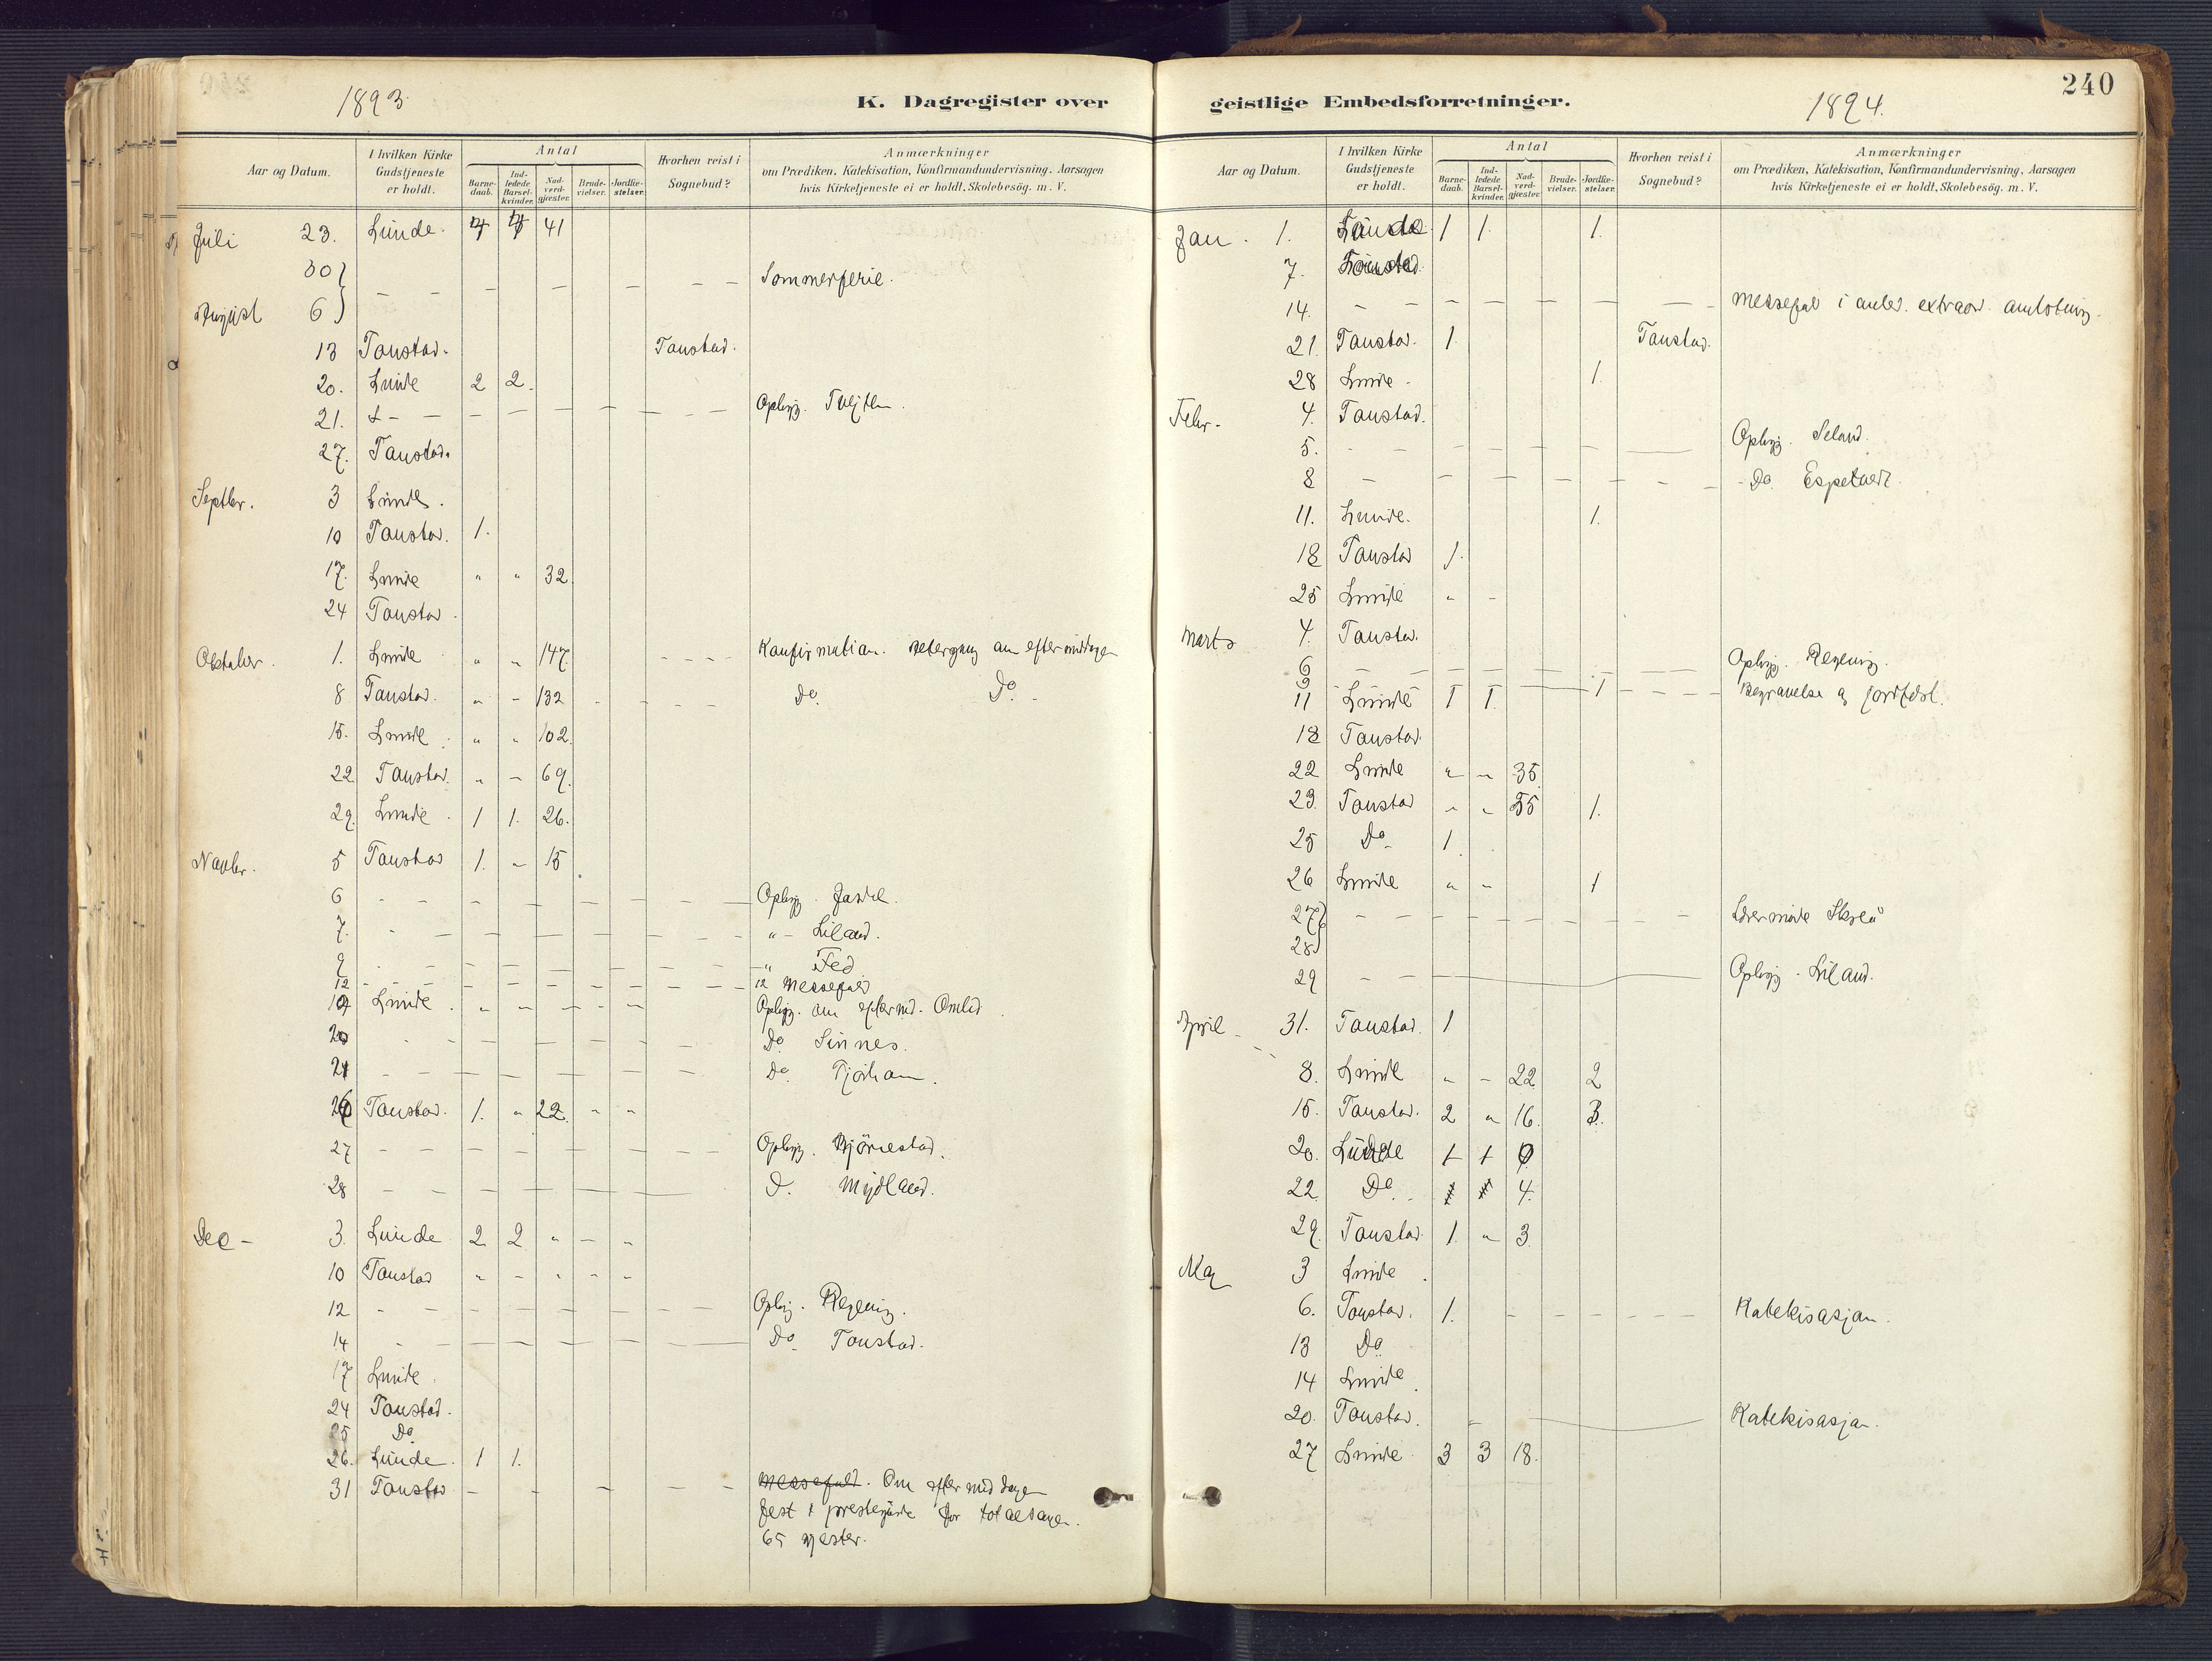 1893.
K. Dagregister over
Aar og Datum.
I hvilken Kirke Gudstjeneste er holdt.
Antal
Barne-daab.
Ind-ledede Barsel-kvinder.
Nad-verd-gjæster.
Brude-vielser.
Jordfæ-stelser.
Hvorhen reist i Sognebud?
Anmærkninger
om Prædiken, Katekisation, Konfirmandundervisning, Aarsagen
hvis Kirketjeneste ei er holdt, Skolebesög. m. V.
Juli 23. Lunde. 41
30 } – – – – – – – Sommerferie.
August 6 }
13 Tonstad. Tonstad.
20. Lunde 2 2.
21. – – – – – – – – Opbyg.
27. Tonstad.
Septbr. 3 Lunde.
10 Tonstad. 1.
17. Lunde " " 32
24 Tonstad.
Oktober. 1. Lunde " " 147 – – – Konfirmation. om eftermiddagen
8 Tonstad. " – 132 – – – – Do. Do.
15. Lunde. " " 102.
22. Tonstad. " – 69.
29. Lunde. 1 1. 26.
Novbr. 5 Tonstad 1. – 15
6 – – – – – – – – Opbyg.
7. – – – – – – – – " – Liland.
9 – – – – – – – – – " Fed
12 – – – – – – – – – 12 Messefald
19 Lunde. " – – – – Opbyg. om efterm. Omlid
20 – – – – – – – Do Sinnes.
21 – – – – – – – – Do. Tjörhom.
26 Tonstad. 1. " 22. " "
27 – – – – – – – – Opbyg. Bjørnestad.
28 – – – – – – – D. Mydland.
Dec – 3. Lunde 2 2 " – "
10 Tonstad " – " – –
12 – – – – – – – – Opbyg. Regevig.
14 – – – – – – – Do. Tonstad.
17 Lunde.
24 Tonstad.
25 Do
26. Lunde. 1 1.
31 Tonstad – – – – – – – Messefald. Om eftermiddagen
fest i for totalsagen.
65 gjester.
240
geistlige Embedsforretninger.
1894.
Aar og Datum.
I hvilken Kirke Gudstjeneste er holdt.
Antal
Barne-daab.
Ind-ledede Barsel-kvinder.
Nad-verd-gjæster.
Brude-vielser.
Jordfæ-stelser.
Hvorhen reist i Sognebud?
Anmærkninger
om Prædiken, Katekisation, Konfirmandundervisning, Aarsagen
hvis Kirketjeneste ei er holdt, Skolebesög. m. V.
Jan. 1. Lunde 1 1. 1.
7. Tonstad.
14. – – – – – – – – Messefal i anled. extraord. amtsting.
21. Tonstad. 1. Tonstad.
28 Lunde. 1.
Febr. 4. Tonstad.
5. – – – – – – – Opbyg. Seland.
8 – – – – – – – – – Do. Espetveit.
11. Lunde. 1.
18 Tonstad 1.
25 Lunde " –
Marts 4. Tonstad.
6 – – – – – – – Opbyg. Regevig.
9 – – – – – 1 – – – Begravelse og jordfæst.
11 Lunde 1 1.
18 Tonstad.
22 Lunde " " 35.
23. Tonstad " " 55 1.
25 Do. 1.
26 Lunde " " 1
27 } – – – – – – – – –
28 }
29 – – – Opbyg. Liland.
April – 31. Tonstad. 1
8. Lunde " – 22 2
15. Tonstad. 2 " 16. 3.
20. Lunde 1 1
22. Do. 4.
29. Tonstad. 1. " 3.
Maj 3 Lunde.
6. Tonstad. 1. – – – – – Katekisasjon.
13 Do.
14 Lunde.
20. Tonstad. – – Katekisasjon.
27 Lunde. 3 3 18.